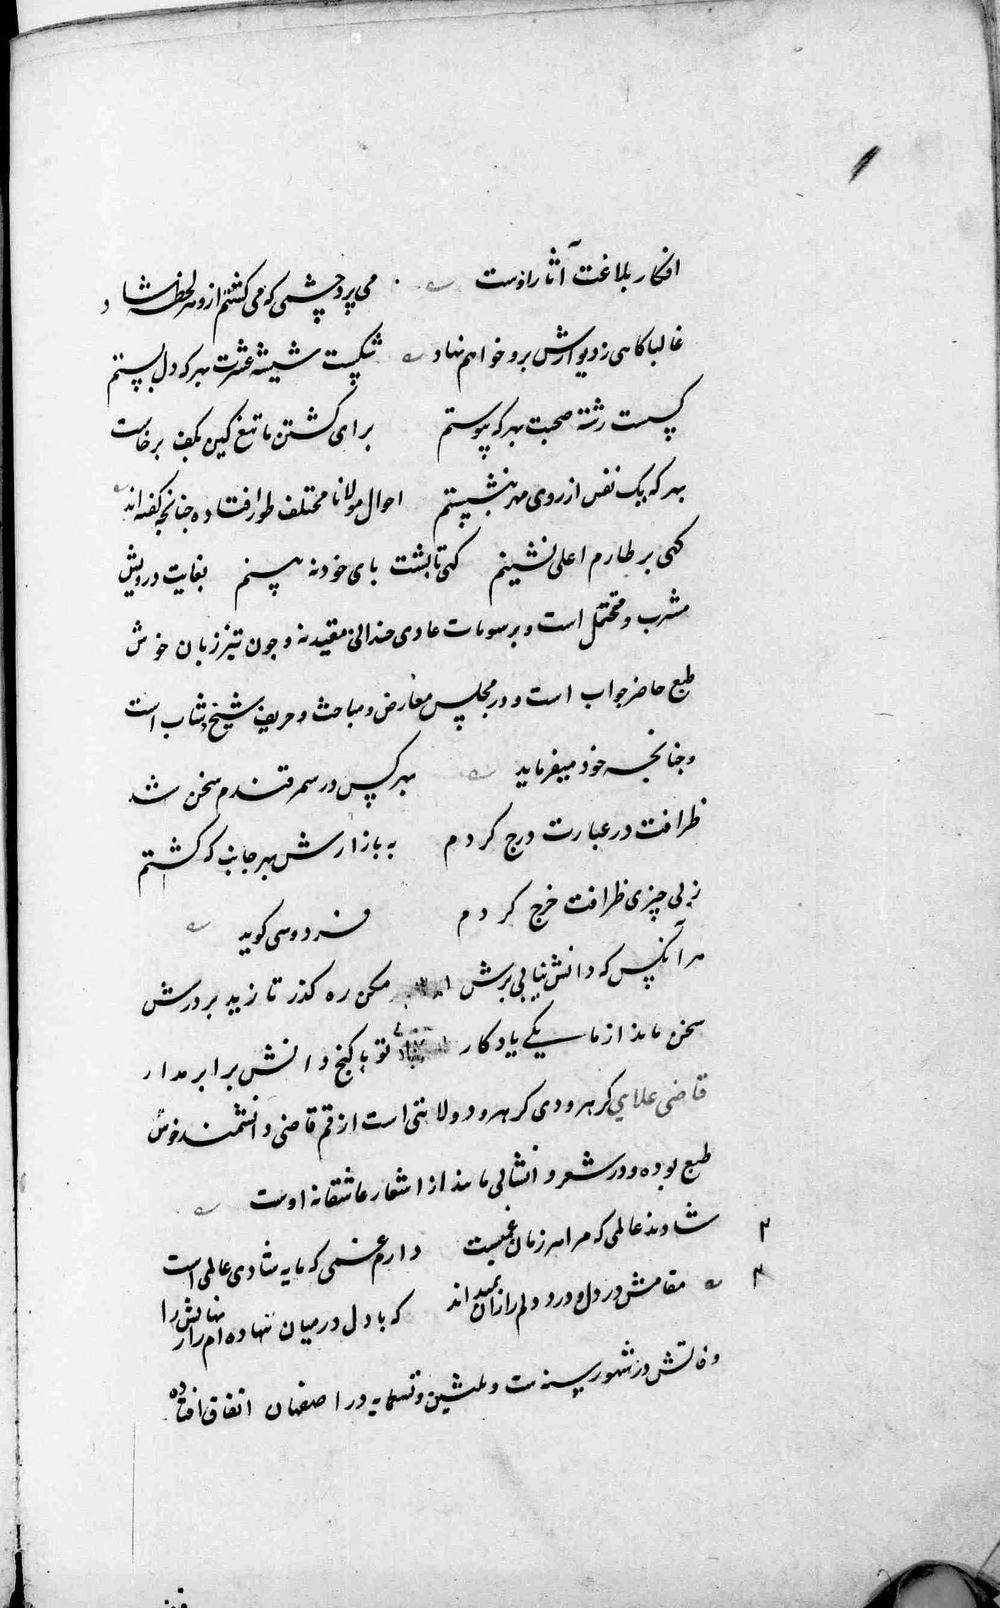 افکار بلاغت آثار اوست می پرد چشمی که می کشتم ازو هر لحظه شاد
غالبا کاهی ز دیوارش برو خواهم نهاد شکست شیشه عشرت بهر که دل بستم
کسست رشته صحبت بهر که پیوستم برای کشتن ما تیغ کین بکف برخاست
بهر که یک نفس از روی مهر بنشستم احوال مولانا مختلف طور افتاده جنانجه کفته اند
کهی بر طارم اعلی نشینم کهی تا بشت بای خود نه بینم بغایت درویش
مشرب و متحمل است و برسومات عادی جندانی مقید نه و جون تیز زبان خوش
طبع حاضر جواب است و در مجلس معارض و مباحث و حریف شیخ و شاب است
و جنانجه خود میفرماید بهر کس در سمرقندم سخن شد
ظرافت در عبارت درج کردم به بازارش بهر جانب که کشتم
ز بی چیزی ظرافت خرج کردم فردوسی کوید
هر آنکس که دانش نیابی برش مکن ره کذر تا زید بر درش
سخن ماند از ما یکی یادکار تو با کنج دانش برابر مدار
قاضی علایی کرهرودی کرهرود ولایتی است از قم قاضی دانشمند خوش
طبع بوده و در شعر و انشا بی مانند از اشعار عاشقانه اوست
شادند عالمی که مرا هر زمان غمیست دارم غمی که مایه شادی عالمی است
مقامش در دل و درد دلم را زان نمیداند که با دل در میان ننهاده ام راز نهانش را
وفاتش در شهور سنه ست و ثلثین و تسعمایه در اصفهان اتفاق افتاده